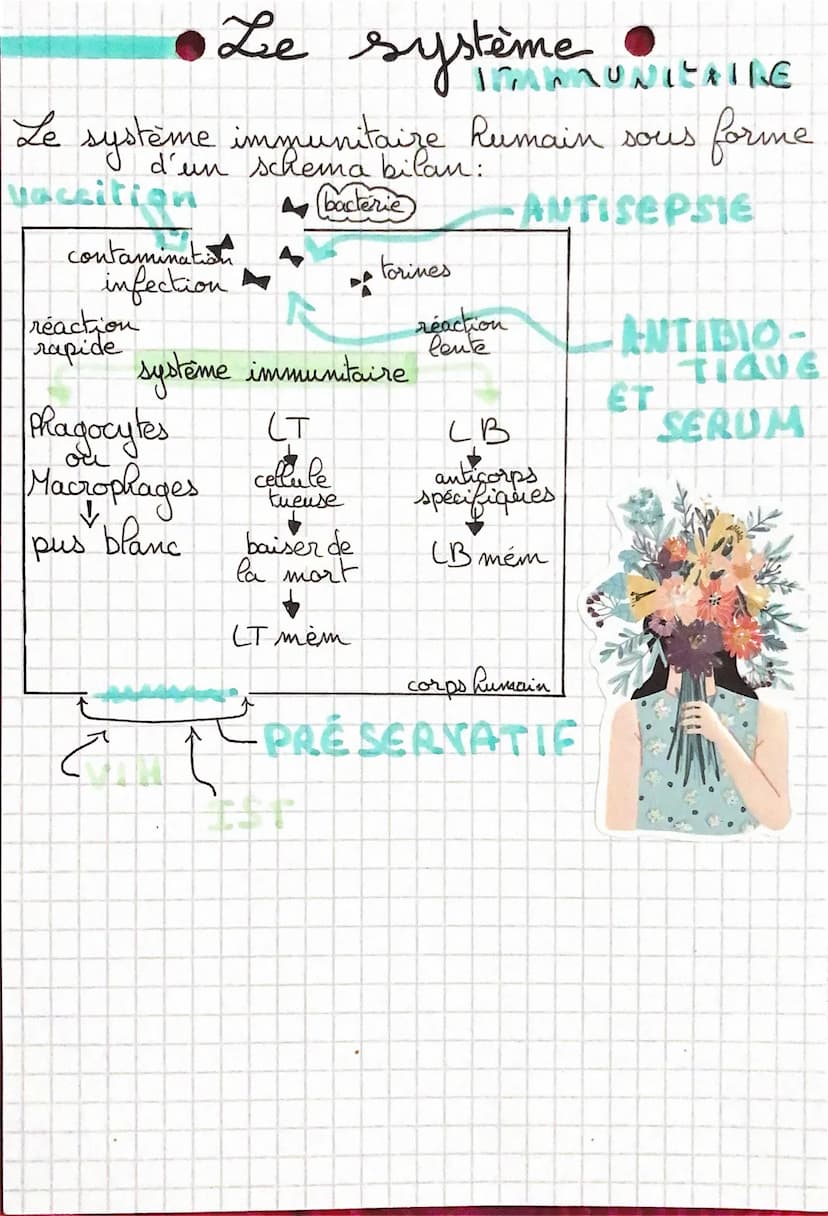 Le système
IMMUNITAIRE
Le système immunitaire humain sous forme
d'un schema bilan:
vaccition
bactérie
ANTISEPSIE
contamination
infection
torines
réaction
rapide
réaction
lente
ANTIBIO-
TIQUE
ET
SERUM
système immunitaire
Phagocytes
ou
Macrophages
pus blanc
LT
cellule
tueuse
baiser de
la mort
LT mèm
LB
anticorps
spécifiques
LB mém
corps humain
PRÉSERVATIF
VIH
IST